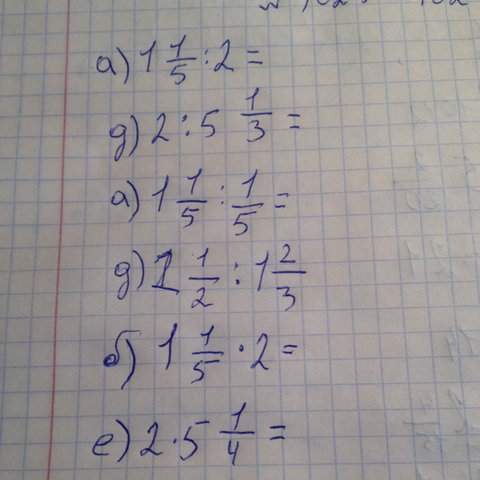 а) 1 1/5 : 2 =
д) 2 : 5 1/3 =
а) 1 1/5 : 1/5 =
д) 1 1/2 : 1 2/3
б) 1 1/5 · 2 =
е) 2 · 5 1/4 =